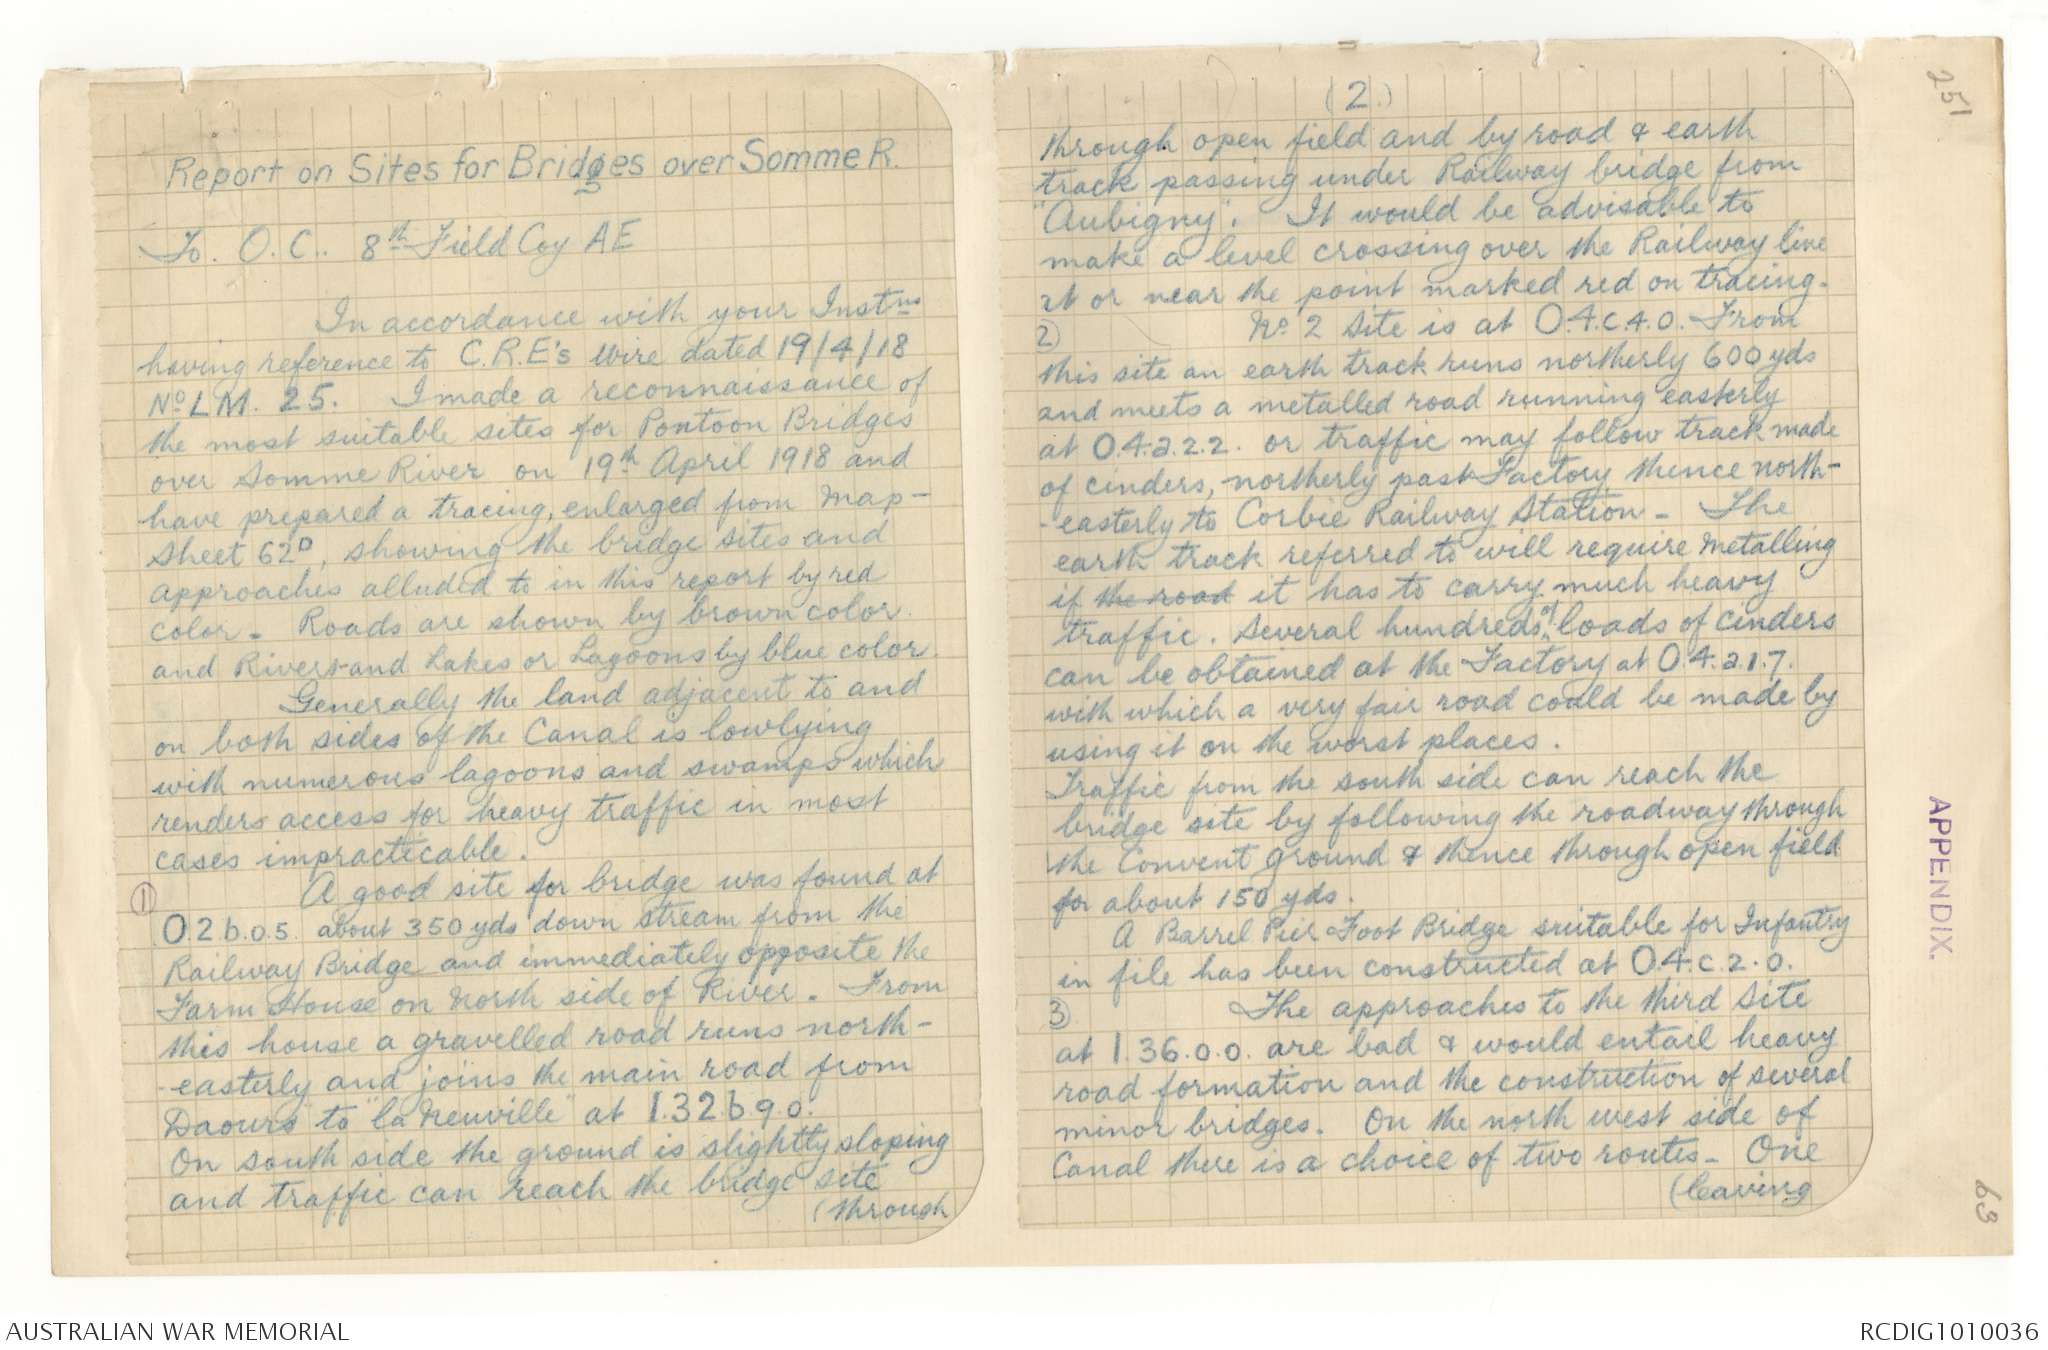 Report on Sites for Bridges over Somme R.
To. O.C.. 8th Field Coy AE
In accordance with your Instns
having reference to C.R.E's wire dated 19/4/18
No LM. 25. I made a reconnaissance of
the most suitable sites for Pontoon Bridges
over Somme River on 19th April 1918 and
have prepared a tracing, enlarged from Map-
Sheet 62D, showing the bridge sites and
approaches alluded to in this report by red
color. Roads are shown by brown color.
and Rivers and Lakes or Lagoons by blue color.
Generally the land adjacent to and
on both sides of the Canal is lowlying
with numerous lagoons and swamps which
renders access for heavy traffic in most
cases impracticable.
1) A good site for bridge was found at
O.2.b.0.5. about 350 yds down stream from the
Railway Bridge and immediately opposite the
Farm House on North side of River. From
this house a gravelled road runs north-
-easterly and joins the main road from
Daours to "la Neuville" at I.32.b.9.0.
On south side the ground is slightly sloping
and traffic can reach the bridge site
(through
(2.)
through open field and by road & earth
track passing under Railway bridge from
"Aubigny". It would be advisable to
make a level crossing over the Railway line
at or near the point marked red on tracing.
2) No. 2 Site is at O.4.c.4.0. From
this site an earth track runs northerly 600 yds
and meets a metalled road running easterly
at O.4.a.2.2. or traffic may follow track made
of cinders, northerly past Factory thence north-
-easterly to Corbie Railway Station - The
earth track referred to will require metalling
if the road it has to carry much heavy
traffic. Several hundreds of loads of cinders
can be obtained at the Factory at O.4.a.1.7.
with which a very fair road could be made by
using it on the worst places.
Traffic from the south side can reach the
bridge site by following the roadway through
the Convent ground & thence through open field
for about 150 yds.
A Barrel Pier Foot Bridge suitable for Infantry
in file has been constructed at O.4.c.2.0.
3) The approaches to the third Site
at I.36.0.0. are bad & would entail heavy
road formation and the construction of several
minor bridges. On the north west side of
Canal there is a choice of two routes - One
(leaving
251
APPENDIX.
63
AUSTRALIAN WAR MEMORIAL
RCDIG1010036